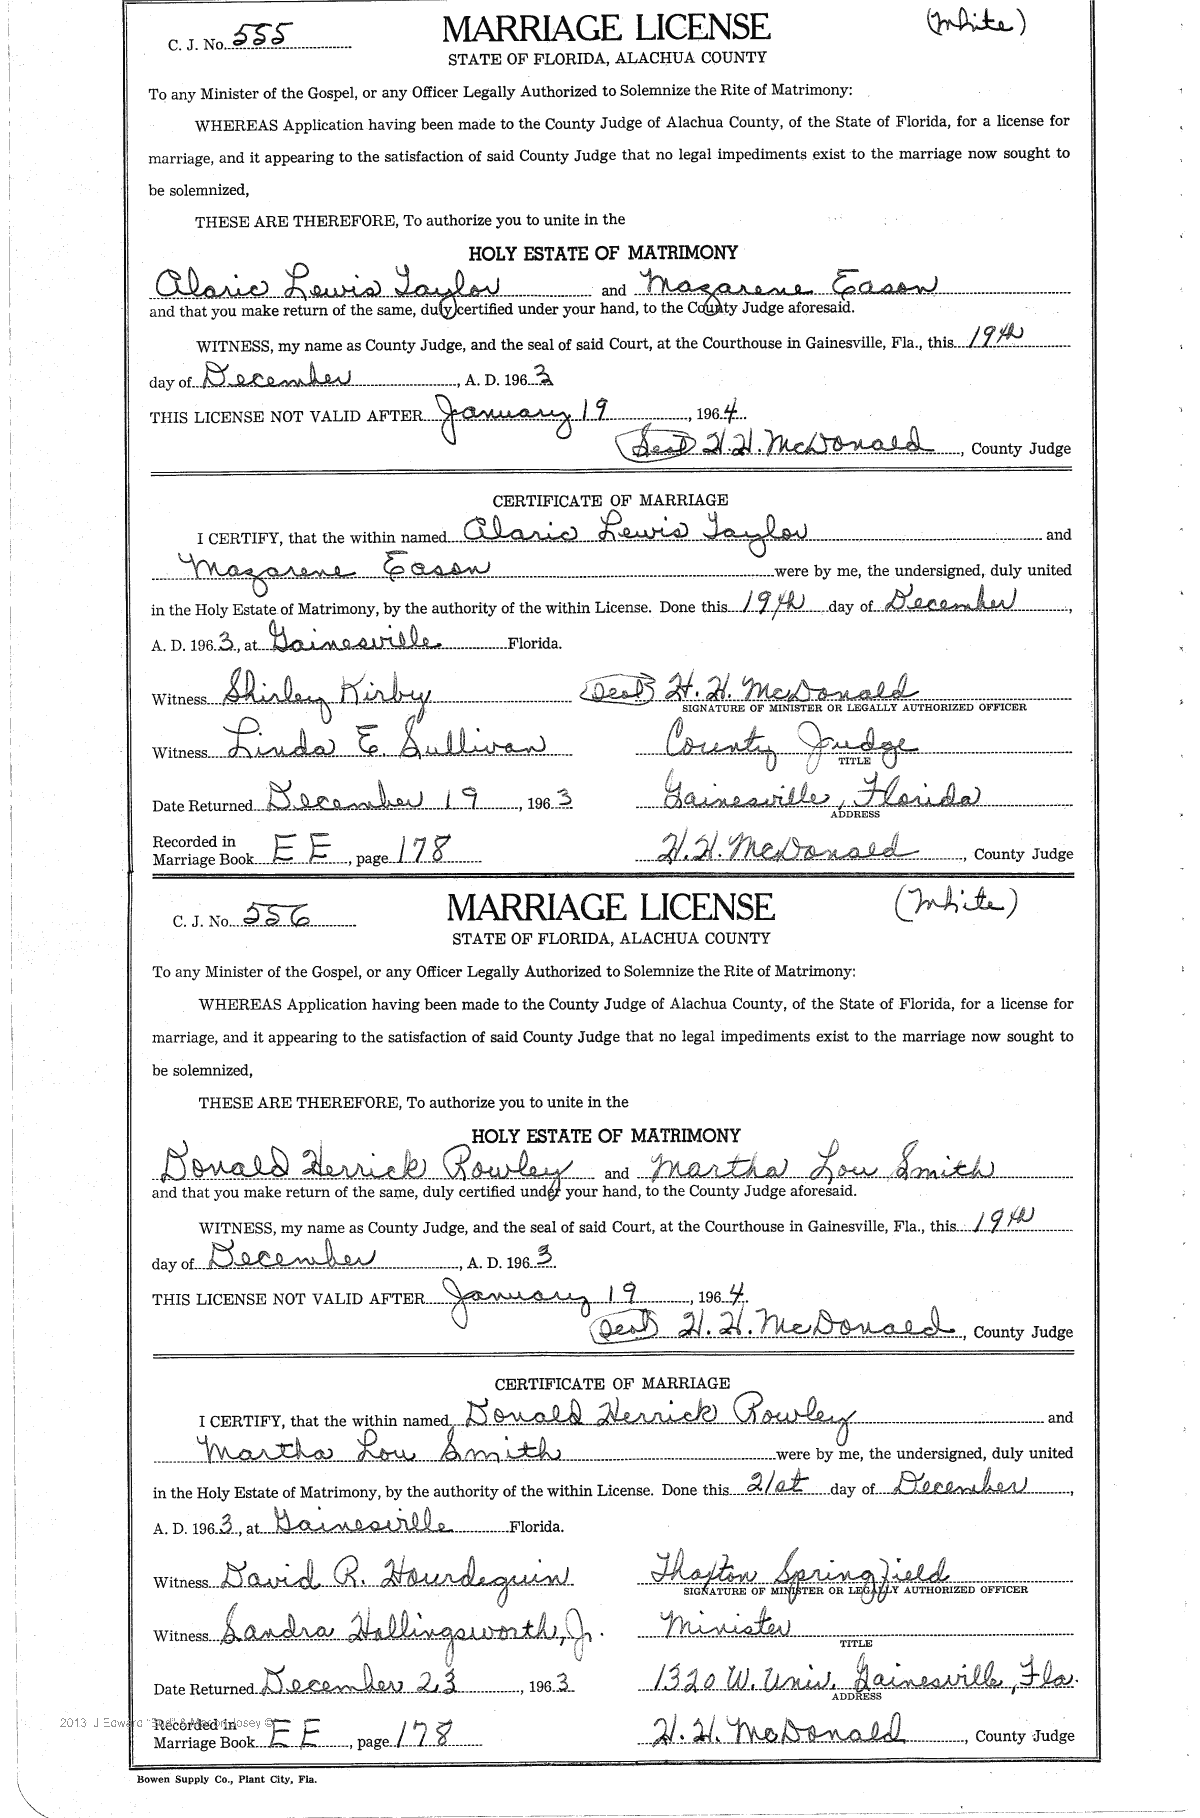 C. J. No. 555
MARRIAGE LICENSE
(White)
STATE OF FLORIDA, ALACHUA COUNTY
To any Minister of the Gospel, or any Officer Legally Authorized to Solemnize the Rite of Matrimony:
WHEREAS Application having been made to the County Judge of Alachua County, of the State of Florida, for a license for
marriage, and it appearing to the satisfaction of said County Judge that no legal impediments exist to the marriage now sought to
be solemnized,
THESE ARE THEREFORE, To authorize you to unite in the
HOLY ESTATE OF MATRIMONY
Alaric Lewis Taylor and Mazarene Eason
and that you make return of the same, duly certified under your hand, to the County Judge aforesaid.
WITNESS, my name as County Judge, and the seal of said Court, at the Courthouse in Gainesville, Fla., this 19th
day of December, A. D. 1963
THIS LICENSE NOT VALID AFTER January 19, 1964
(Seal) H. H. McDonald, County Judge
CERTIFICATE OF MARRIAGE
I CERTIFY, that the within named Alaric Lewis Taylor and
Mazarene Eason were by me, the undersigned, duly united
in the Holy Estate of Matrimony, by the authority of the within License. Done this 19th day of December,
A. D. 1963, at Gainesville Florida.
Witness Shirley Kirby (Seal) H. H. McDonald
SIGNATURE OF MINISTER OR LEGALLY AUTHORIZED OFFICER
Witness Linda E. Sullivan County Judge
TITLE
Date Returned December 19, 1963 Gainesville, Florida
ADDRESS
Recorded in
Marriage Book EE, page 178 H. H. McDonald, County Judge
C. J. No. 556
MARRIAGE LICENSE
(White)
STATE OF FLORIDA, ALACHUA COUNTY
To any Minister of the Gospel, or any Officer Legally Authorized to Solemnize the Rite of Matrimony:
WHEREAS Application having been made to the County Judge of Alachua County, of the State of Florida, for a license for
marriage, and it appearing to the satisfaction of said County Judge that no legal impediments exist to the marriage now sought to
be solemnized,
THESE ARE THEREFORE, To authorize you to unite in the
HOLY ESTATE OF MATRIMONY
Donald Herrick Rowley and Martha Lou Smith
and that you make return of the same, duly certified under your hand, to the County Judge aforesaid.
WITNESS, my name as County Judge, and the seal of said Court, at the Courthouse in Gainesville, Fla., this 19th
day of December, A. D. 1963.
THIS LICENSE NOT VALID AFTER January 19, 1964.
(Seal) H. H. McDonald, County Judge
CERTIFICATE OF MARRIAGE
I CERTIFY, that the within named Donald Herrick Rowley and
Martha Lou Smith were by me, the undersigned, duly united
in the Holy Estate of Matrimony, by the authority of the within License. Done this 21st day of December,
A. D. 1963, at Gainesville Florida.
Witness David R. Hourdequin Thaxton Springfield
SIGNATURE OF MINISTER OR LEGALLY AUTHORIZED OFFICER
Witness Sandra Hollingsworth, Jr. Minister
TITLE
Date Returned December 23, 1963 1320 W. Univ. Gainesville, Fla.
ADDRESS
2013 J Edward
Recorded in
Marriage Book EE, page 178 H. H. McDonald, County Judge
Bowen Supply Co., Plant City, Fla.